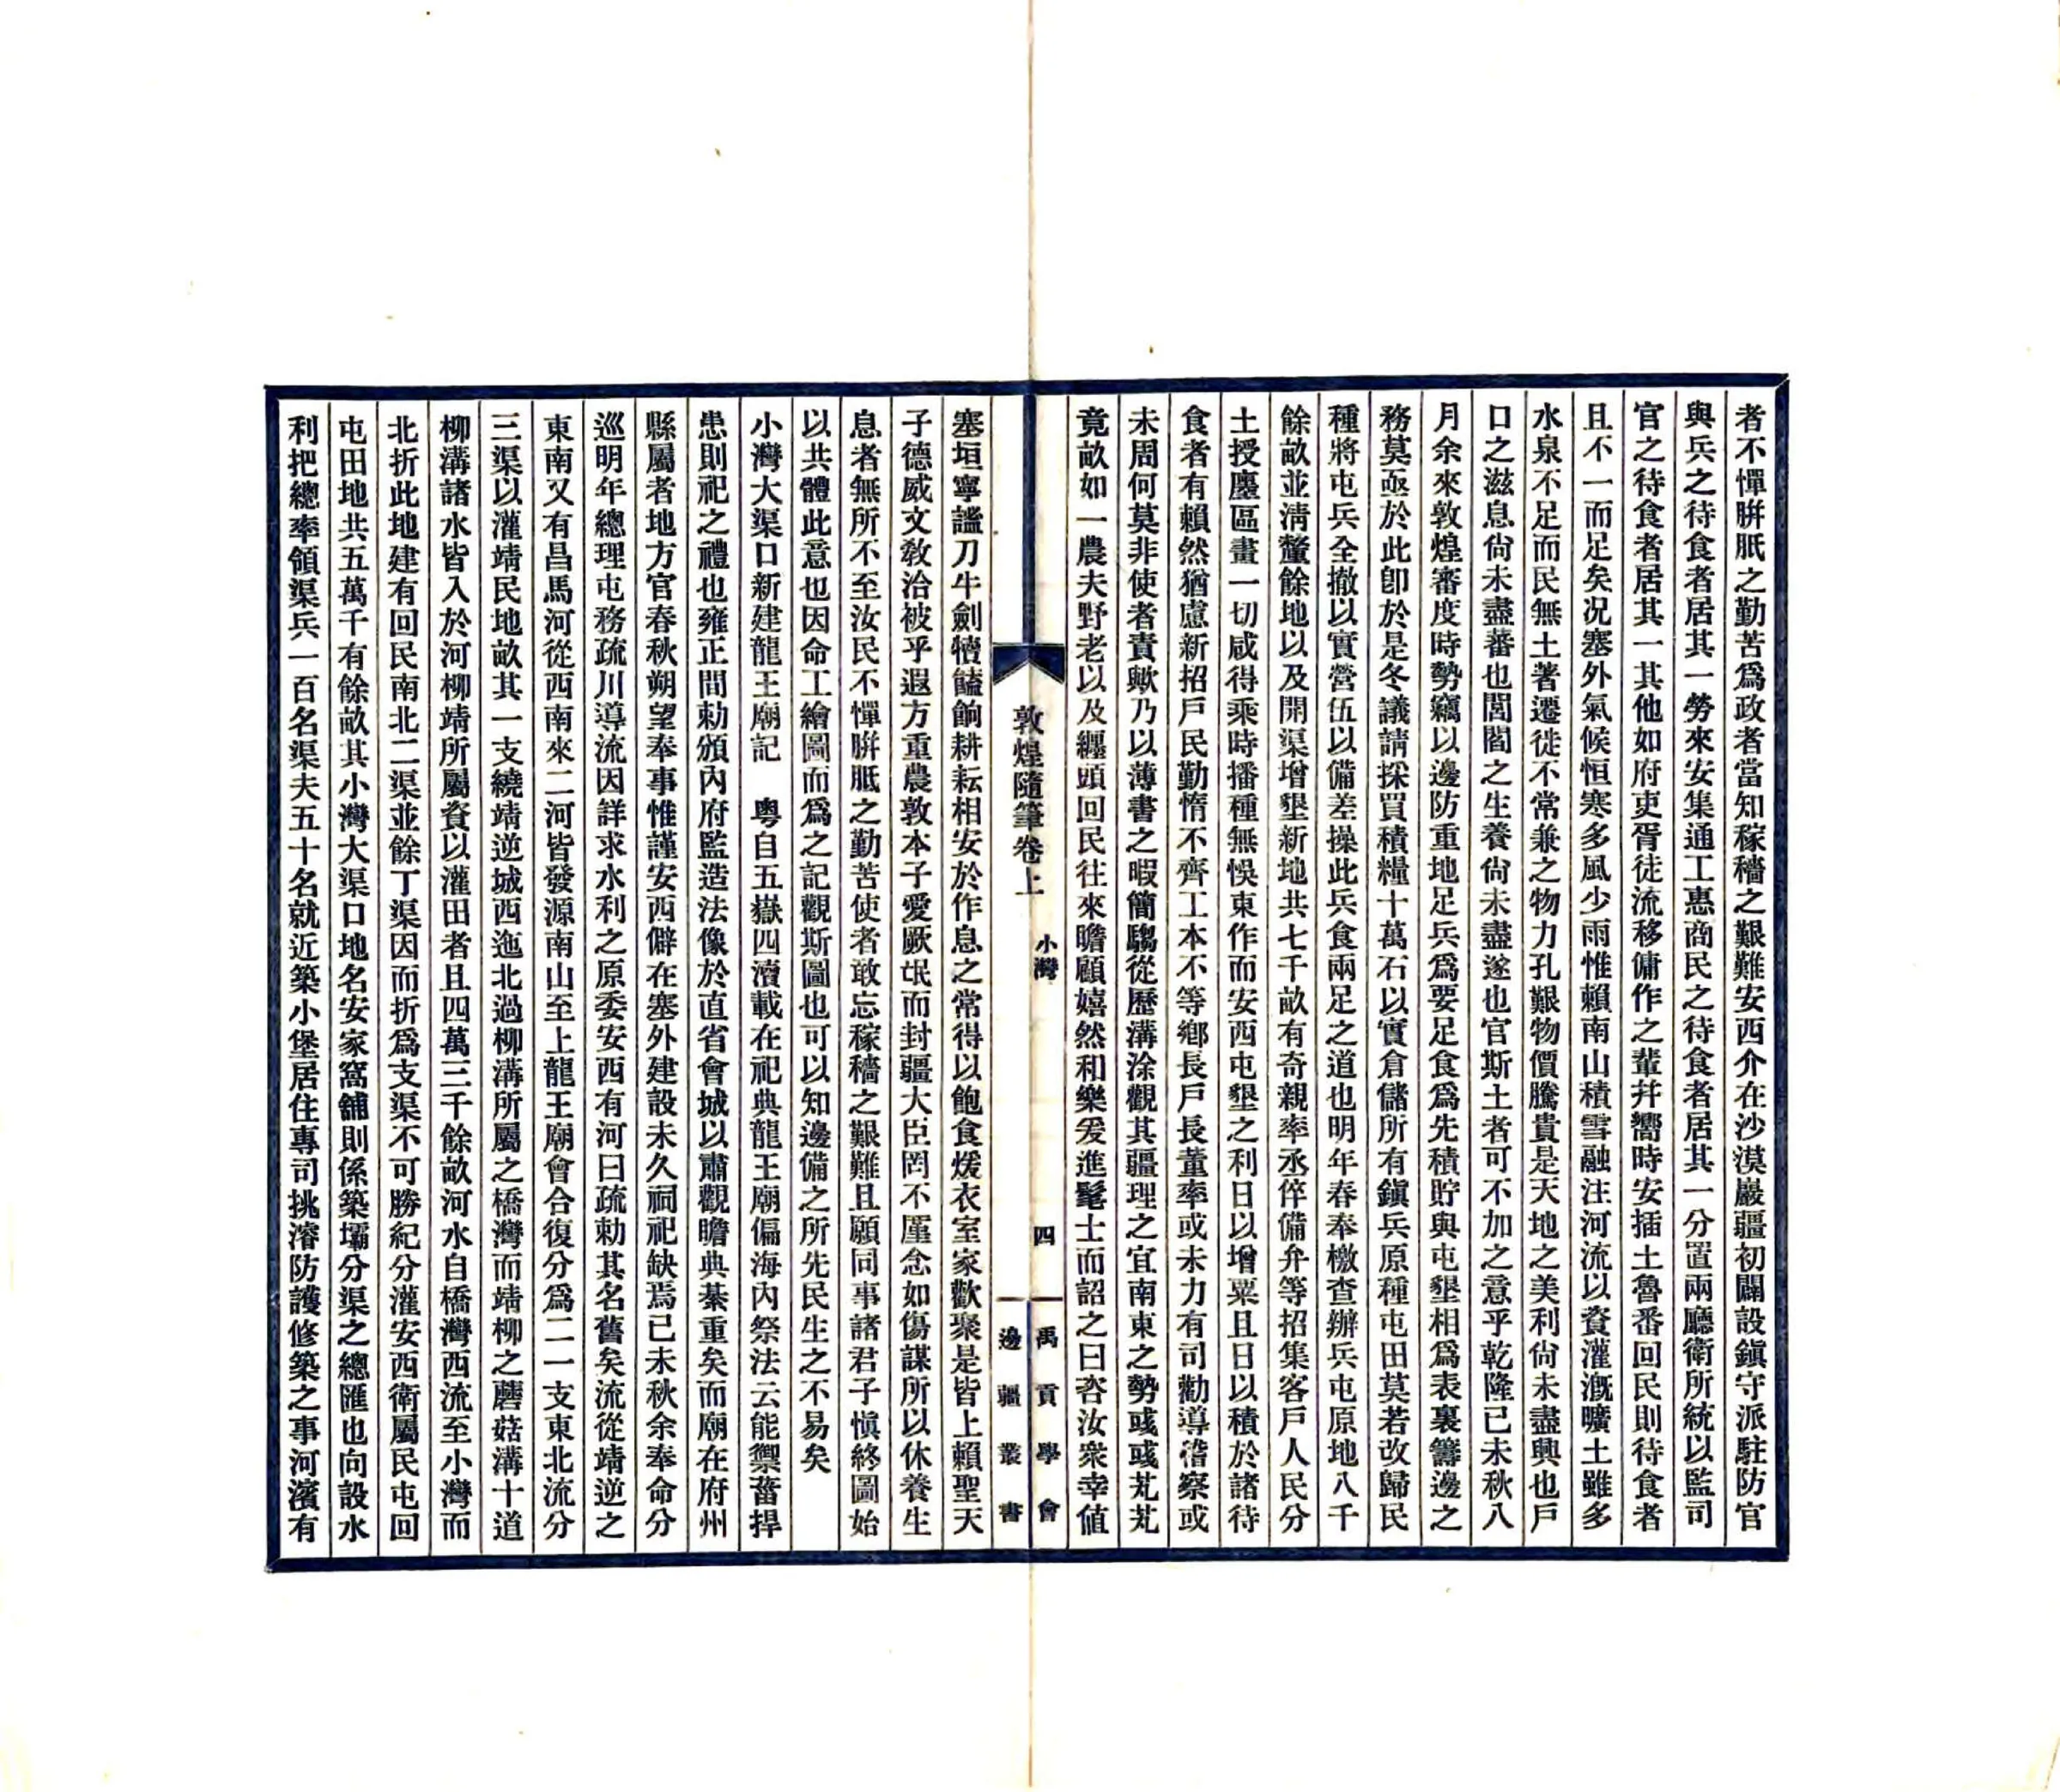 者不憚胼胝之勤苦爲政者當知稼穡之艱難安西介在沙漠巖疆初闢設鎭守派駐防官
與兵之待食者居其一勞來安集通工惠商民之待食者居其一分置兩廳衛所統以監司
官之待食者居其一其他如府吏胥徒流移傭作之輩幷嚮時安插土魯番回民則待食者
且不一而足矣況塞外氣候恒寒多風少雨惟賴南山積雪融注河流以資灌漑曠土雖多
水泉不足而民無土著遷徙不常兼之物力孔艱物價騰貴是天地之美利尙未盡興也戶
口之滋息尙未盡蕃也閭閻之生養尙未盡遂也官斯土者可不加之意乎乾隆己未秋八
月余來敦煌審度時勢竊以邊防重地足兵爲要足食爲先積貯與屯墾相爲表裏籌邊之
務莫亟於此卽於是冬議請採買積糧十萬石以實倉儲所有鎭兵原種屯田莫若改歸民
種將屯兵全撤以實營伍以備差操此兵食兩足之道也明年春奉檄查辦兵屯原地八千
餘畝並淸釐餘地以及開渠增墾新地共七千畝有奇親率丞倅備弁等招集客戶人民分
土授廛區畫一切咸得乘時播種無悞東作而安西屯墾之利日以增粟且日以積於諸待
食者有賴然猶慮新招戶民勤惰不齊工本不等鄕長戶長董率或未力有司勸導稽察或
未周何莫非使者責歟乃以薄書之暇簡騶從歷溝涂觀其疆理之宜南東之勢彧彧芃芃
竟畝如一農夫野老以及纏頭回民往來瞻顧嬉然和樂爰進髦士而詔之曰咨汝衆幸値
敦煌隨筆卷上 小灣 四 禹貢學會
邊疆叢書
塞垣寧謐刀牛劍犢饁餉耕耘相安於作息之常得以飽食煖衣室家歡聚是皆上賴聖天
子德威文敎洽被乎遐方重農敦本子愛厥氓而封疆大臣罔不厪念如傷謀所以休養生
息者無所不至汝民不憚胼胝之勤苦使者敢忘稼穡之艱難且願同事諸君子愼終圖始
以共體此意也因命工繪圖而爲之記觀斯圖也可以知邊備之所先民生之不易矣
小灣大渠口新建龍王廟記　粵自五嶽四瀆載在祀典龍王廟偏海內祭法云能禦菑捍
患則祀之禮也雍正間勅頒內府監造法像於直省會城以肅觀瞻典綦重矣而廟在府州
縣屬者地方官春秋朔望奉事惟謹安西僻在塞外建設未久祠祀缺焉已未秋余奉命分
巡明年總理屯務疏川導流因詳求水利之原委安西有河曰疏勅其名舊矣流從靖逆之
東南又有昌馬河從西南來二河皆發源南山至上龍王廟會合復分爲二一支東北流分
三渠以灌靖民地畝其一支繞靖逆城西迤北過柳溝所屬之橋灣而靖柳之蘑菇溝十道
柳溝諸水皆入於河柳靖所屬資以灌田者且四萬三千餘畝河水自橋灣西流至小灣而
北折此地建有回民南北二渠並餘丁渠因而折爲支渠不可勝紀分灌安西衛屬民屯回
屯田地共五萬千有餘畝其小灣大渠口地名安家窩舖則係築壩分渠之總匯也向設水
利把總率領渠兵一百名渠夫五十名就近築小堡居住專司挑濬防護修築之事河濱有